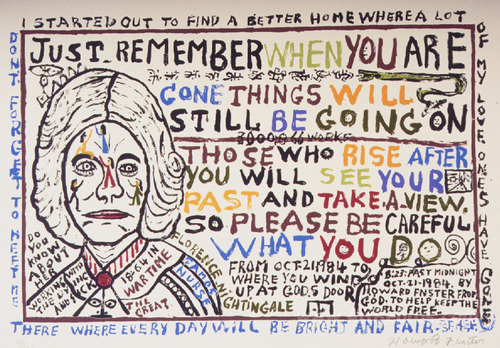 I STARTED OUT TO FIND A BETTER HOME WHERE A LOT
OF MY LOVE ONES HAVE GONE
DONT FORGET TO MEET ME
THERE WHERE EVERY DAY WILL BE BRIGHT AND FAIR.
JUST. REMEMBER WHEN YOU ARE
GONE THINGS WILL
STILL BE GOING ON
3000.866 WORKS
THOSE WHO RISE AFTER
YOU WILL SEE YOUR
PAST AND TAKE A VIEW.
SO PLEASE BE CAREFUL
WHAT YOU DO
FROM OCT-21-1984 TO
WHERE YOU WIND
UP AT GOD'S DOOR
8:23: PAST MIDNIGHT
OCT-21-1984. BY
HOWARD FINSTER FROM
GOD. TO HELP KEEP THE
WORLD FREE.
DO
YOU
KNOW
ABOUT
HER
WORKING AMID
THE
SICK
WAR TIME
THE
GREAT.
FLORENCE NIGHTINGALE
NURSE
Howard Finster